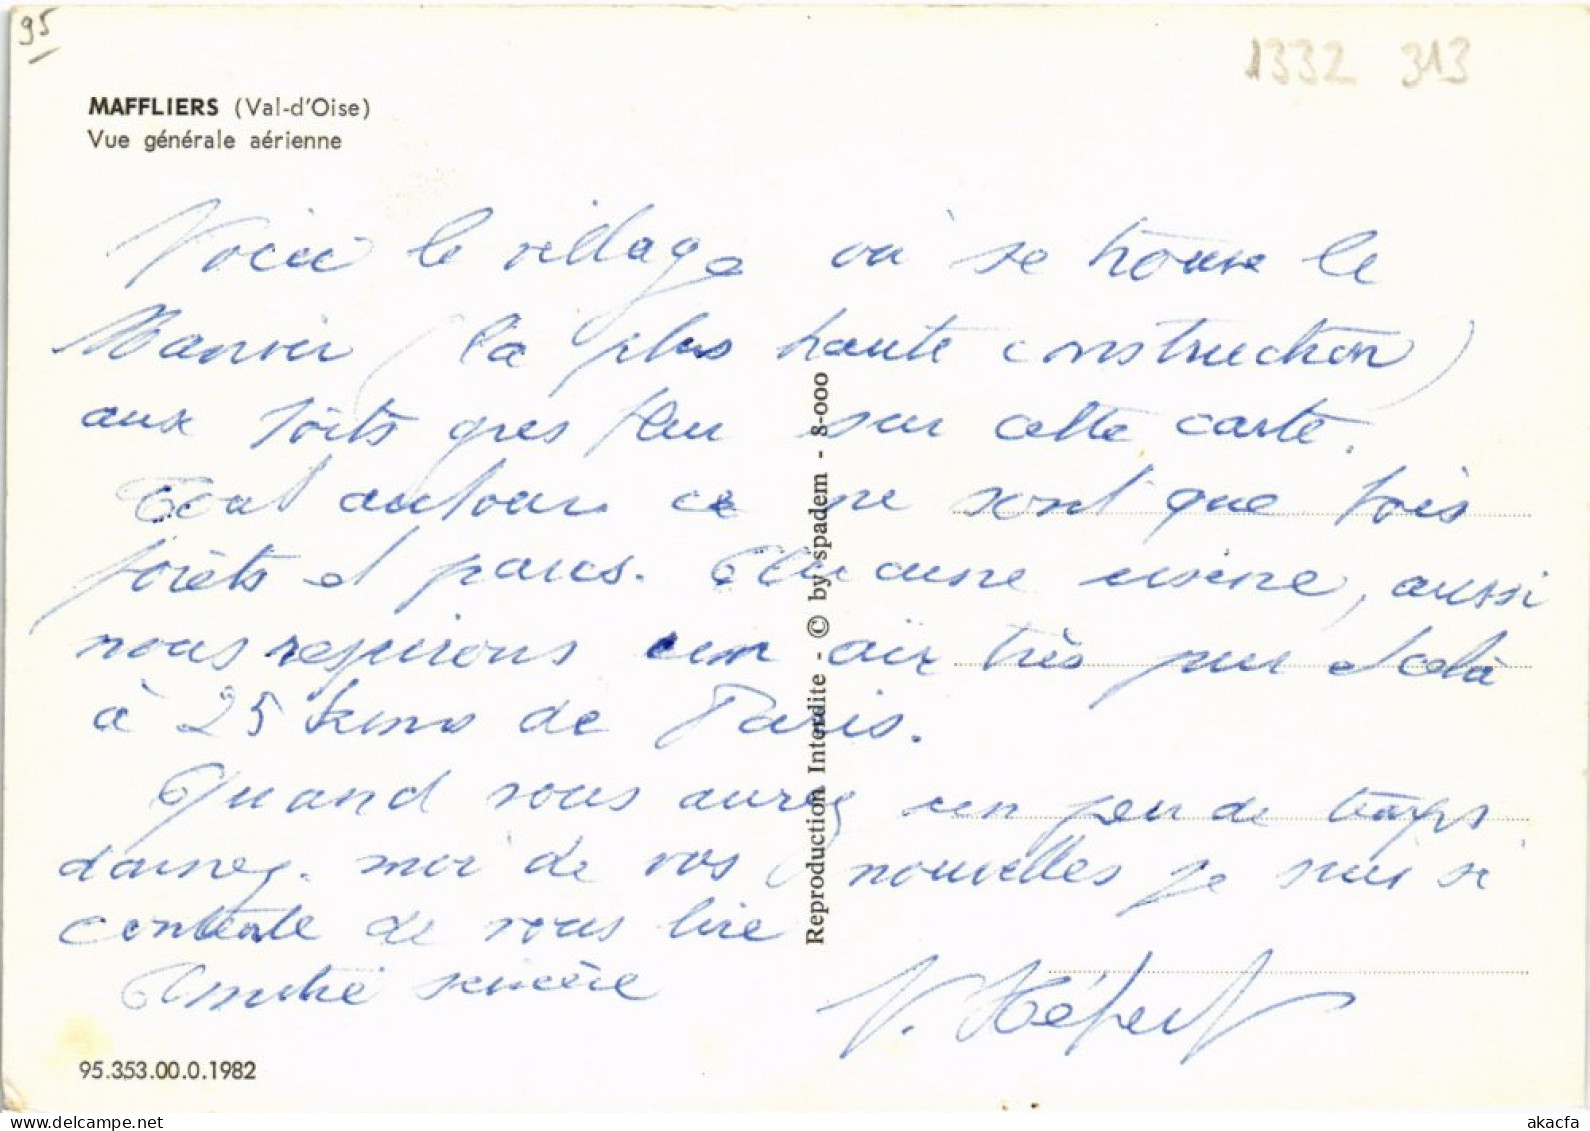 95
1332 313
MAFFLIERS (Val-d'Oise)
Vue générale aérienne
Voici le village où se trouve le
Manoir (la plus haute construction)
aux toits gris bleu sur cette carte.
Tout autour ce ne sont que bois
forêts et parcs. Aucune usine, aussi
nous respirons un air très pur et cela
à 25 kms de Paris.
Quand vous aurez un peu de temps
donnez-moi de vos nouvelles je suis si
contente de vous lire
Amitié sincère
V. Hébert
95.353.00.0.1982
Reproduction Interdite - © by spadem - 8-000
www.delcampe.net
akacfa